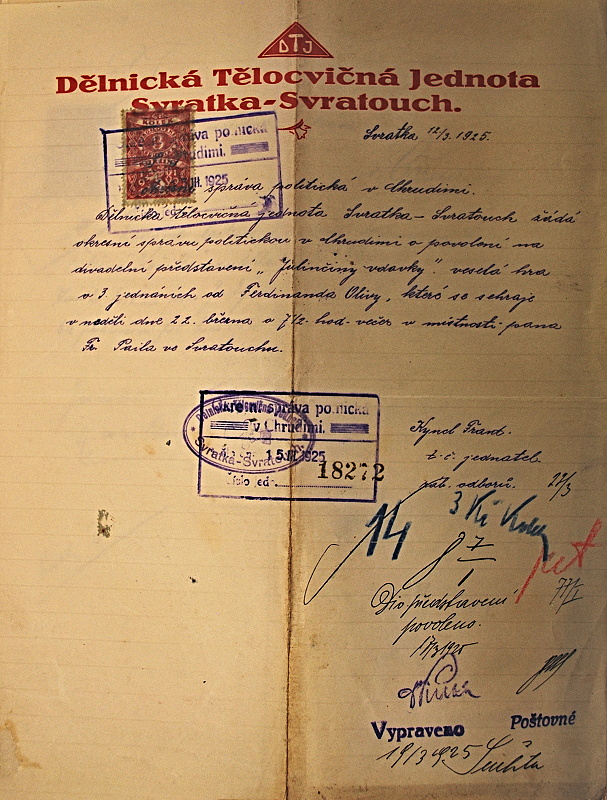 DTJ
Dělnická Tělocvičná Jednota
Svratka-Svratouch.
KOLEK
3
správa politická
Chrudimi.
III. 1925
Svratka 12/3. 1925.
správa politická v Chrudimi.
Dělnická tělocvičná jednota Svratka - Svratouch žádá
okresní správu politickou v Chrudimi o povolení na
divadelní představení „Julinčiny vdavky". veselá hra
o 3. jednáních od Ferdinanda Olivy, které se sehraje
v neděli dne 22. března o 7½ hod. večer v místnosti pana
Fr. Paila ve Svratouchu.
Okresní správa politická
v Chrudimi.
15. III. 1925
Číslo jed. 18272
Dělnická Tělocvičná Jednota
Svratka-Svratouch
Kyncl Frant.
t. č. jednatel
odborů.
14
3 Kč
Dio představení
povoleno.
17/3 1925
Vypraveno
Poštovné
19/3 925